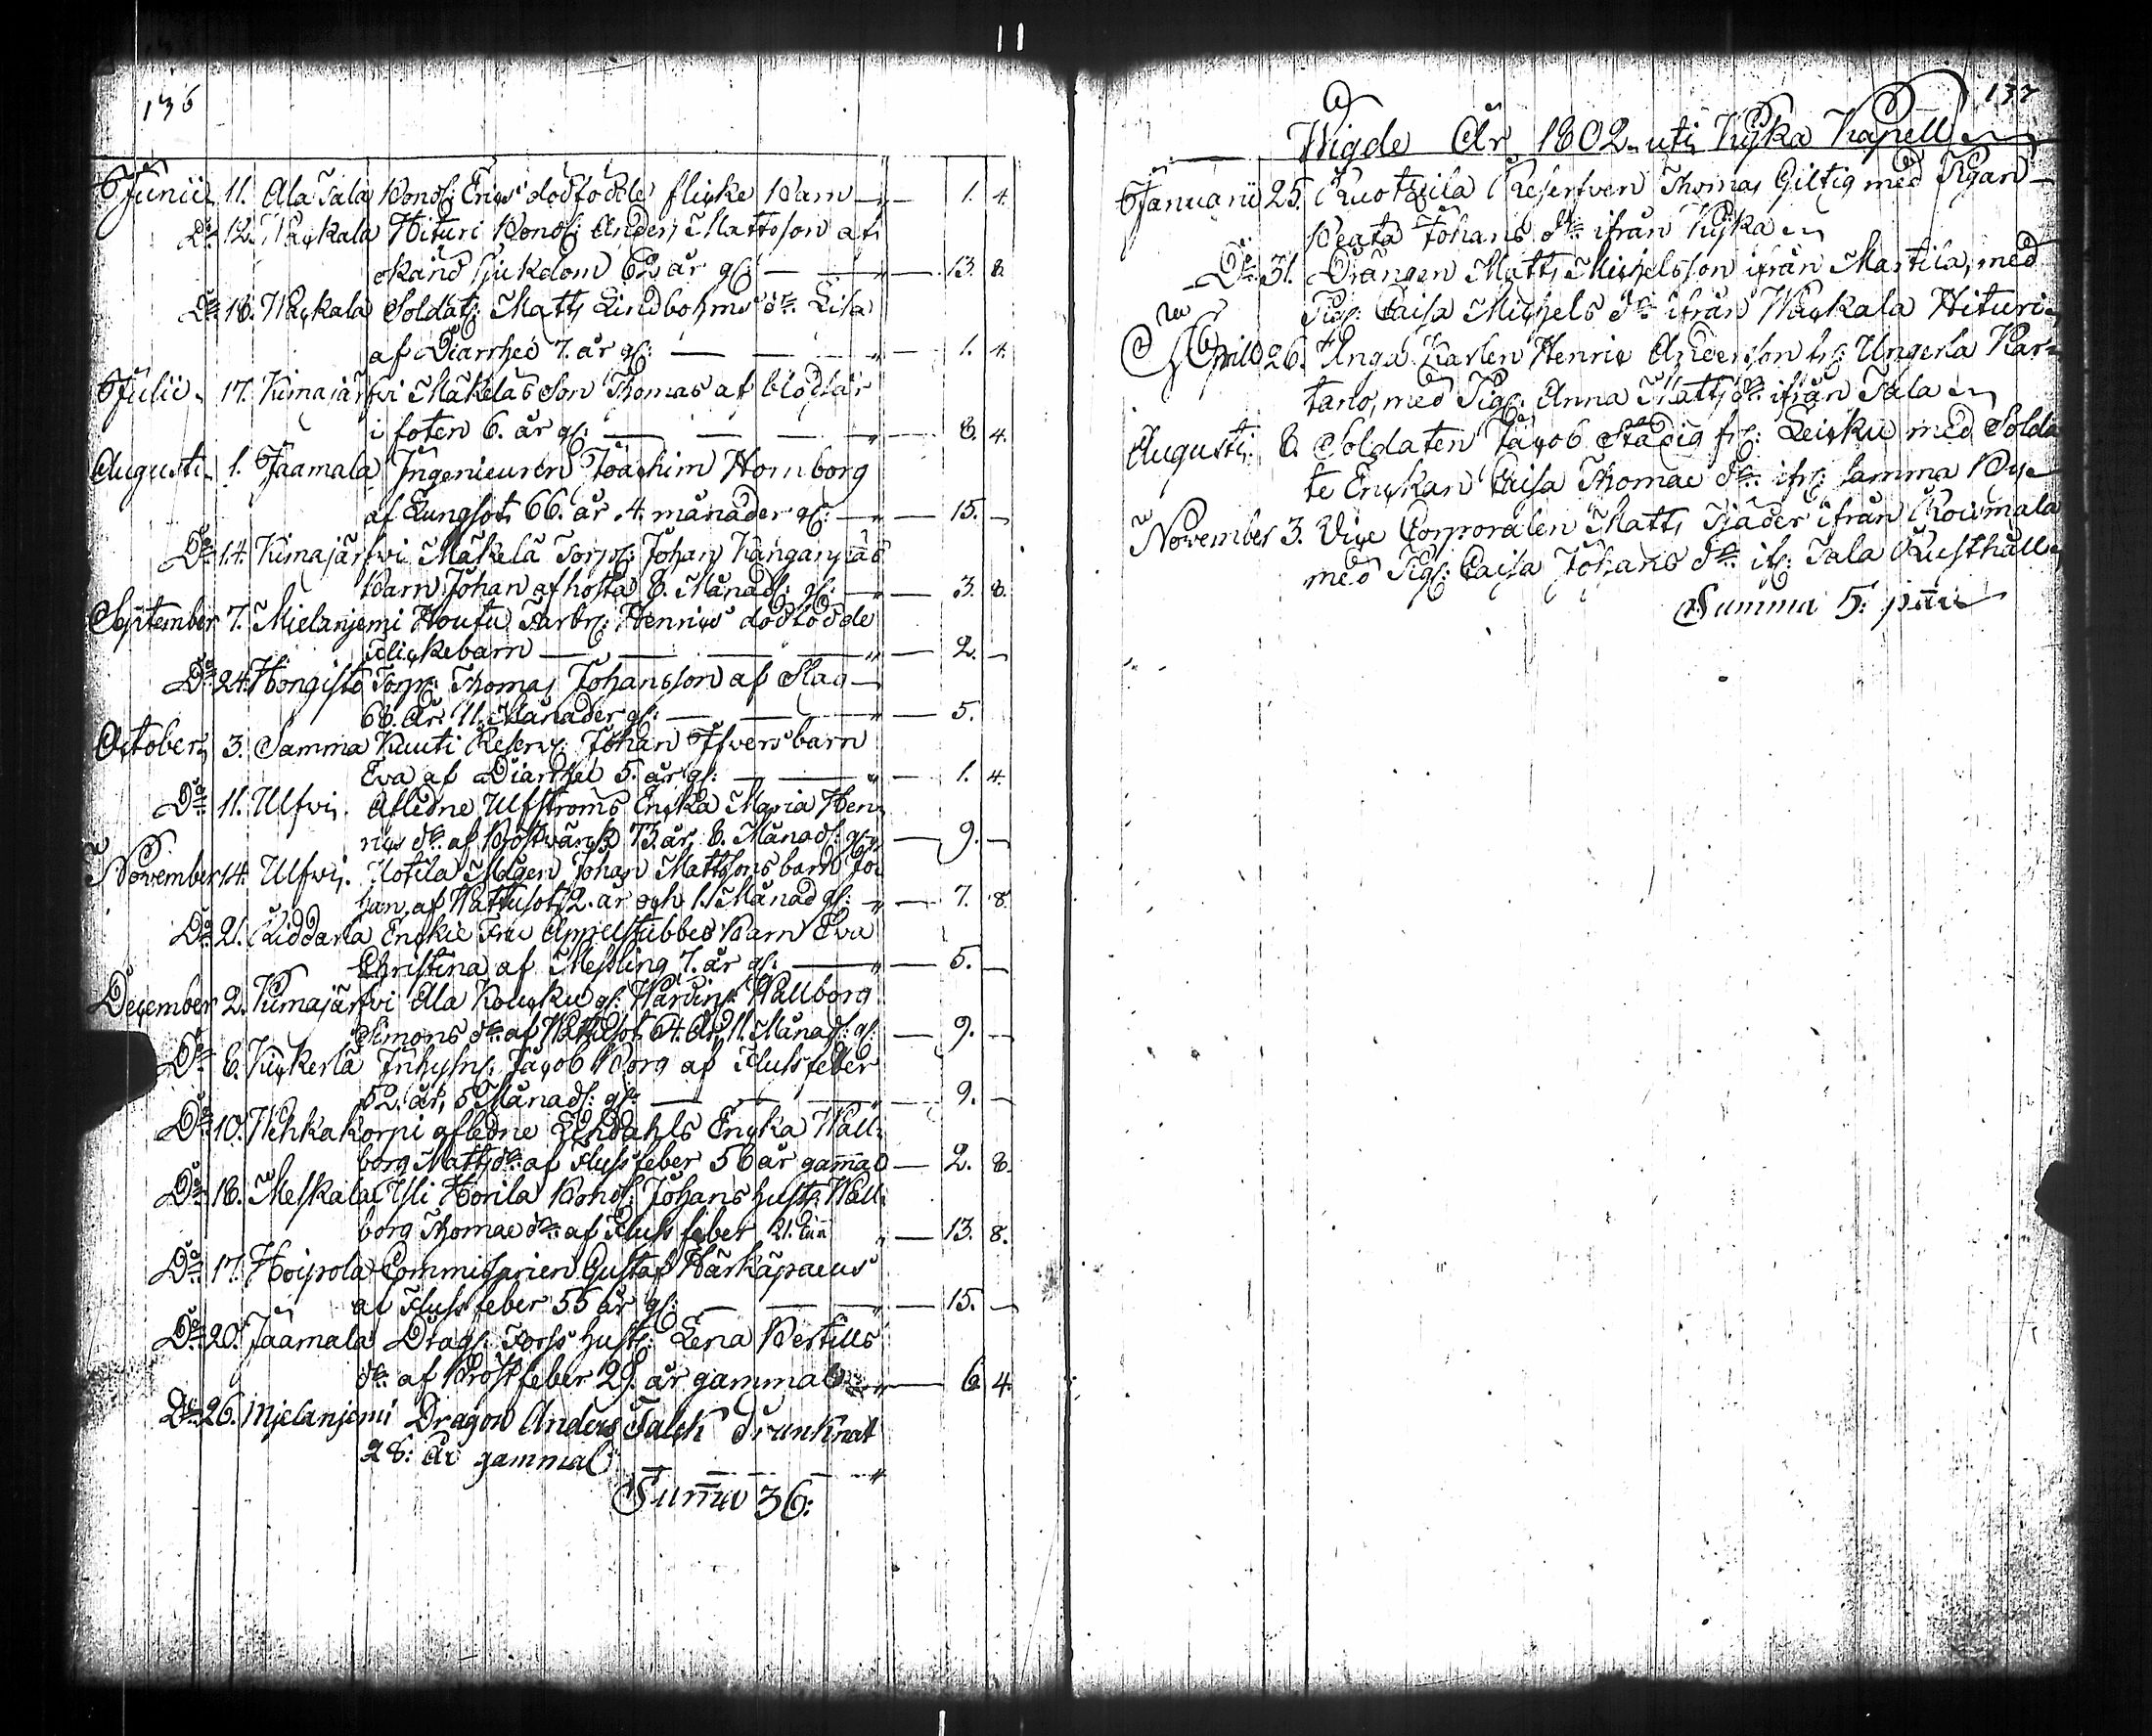 136
Junii 11. Ala Sala Bonds: Erics dödfödde flicke Barn — 1. 4.
Do 12. Wäckala Hituri Bonds: Anders Mattsson af
okänd Sjukdom 62 år gl: — 13. 8.
Do 16. Wäckala Soldats: Matts Lindbohms dr. Lisa
af Diarrhee 7. år gl: — 1. 4.
Julii 17. Kimajärfvi Mäkeläs Son Thomas af
i foten 6. år gl: — 8. 4.
Augusti 1. Jaamala Ingenieuren Joachim Homborg
af Lungsot 66. år 4. månader gl: — 15. —
Do 14. Kimajärfvi Mäkelä Torps: Johan
Barn Johan af hosta 8. Månads: gl: — 3. 8.
September 7. Mielanjemi Houfu Henrics dödfödde
flickebarn — 2. —
Do 24. Hongisto Torpr: Thomas Johansson af Slag
66. År 11. Månader gl: — 5.
October 3. Samma Knuti Reserv: Johan Ifvers barn
Eva af Diarrhee 5. år gl: — 1. 4.
Do 11. Ulfvi. Afledne Ulfströms Encka Maria Hen
rics dr. af Bröstvärck 73. år, 8. Månads: gl: — 9. —
November 14. Ulfvi. Uotila Mågen Johan Mattssons barn Jo
han af Wattusot 2. år och 1. Månad gl: — 7. 8.
Do 21. Riddarla Enckie Fru Appelstubbes Barn Eva
Christina af Messling 7. år gl: — 5. —
December 2. Kimajärfvi Ala Koucku gl: Wärdin: Wallborg
Simons dr. af Wattusot 64. År 11. Månads: gl: — 9. —
Do 6. Kickerlä Inhyses: Jacob Borg af Flussfeber
52. år, 5 Månads: gl: — 9. —
Do 10. Wehkakorpi afledne Lehdahls Encka Wall
borg Matts dr. af Flussfeber 56 år gammal — 2. 8.
Do 18. Meskala Yli Horila Bonds: Johans hustr: Wall
borg Thomae dr. af Fluss feber 21. — 13. 8.
Do 17. Hoipola Commissarien Gustaf Härkäpaeus
af Flussfeber 55 år gl: — 15. —
Do 20. Jaamala Drags: Forss hust: Lena Bertills
dr. af Bröstfeber 29. år gammal — 6. 4.
Do 26. Mjelanjemi Dragon Anders Falck drunknat
28: År gammal —
Summa 36:
137
Wigde År 1802 uti Kyka Kapell
Januarii 25. Ruotzila Reserfven Thomas Giltig med Pigan
Beata Johans dr. ifrån Kyka
Do 31. Drängen Matts Michelsson ifrån Martila, med
Pig: Caisa Michels dr. ifrån Wäckala Hituri
Aprill 26. Unga Karlen Henric Andersson fr: Ungerla Kar
tano, med Pig: Anna Matts dr. ifrån Sala
Augusti 8. Soldaten Jacob Stadig fr: Leicku med Solda
te Enckan Caisa Thomae dr. ifr: samma By
November 3. Vice Corporalen Matts Tjäder ifrån Roismala
med Pig: Caisa Johans dr. if: Sala Rusthåll
Summa 5. par